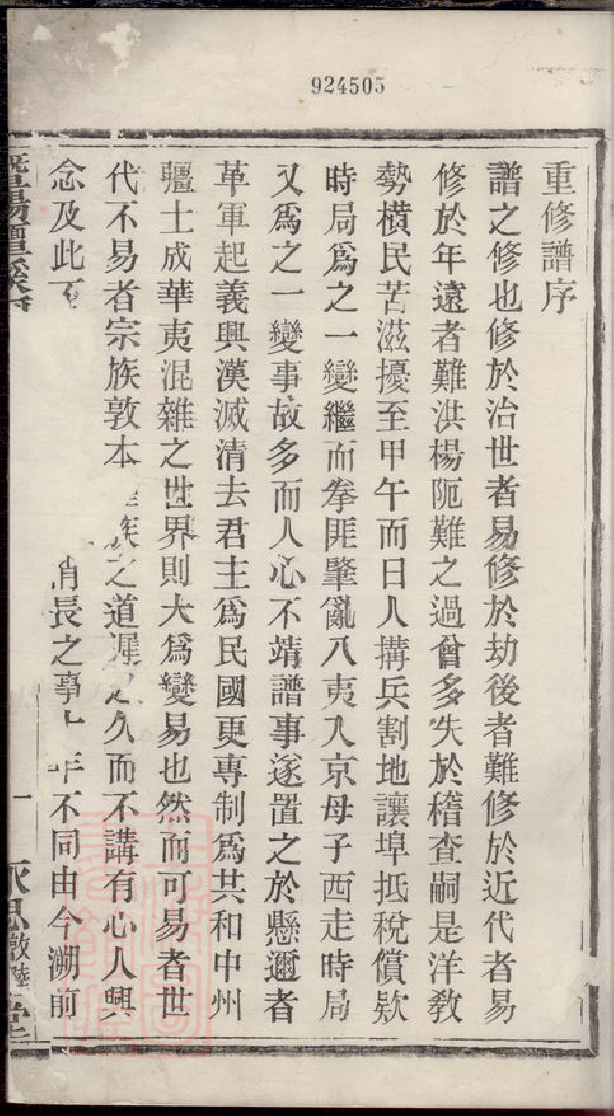 924505
重修譜序
譜之修也修於治世者易修於劫後者難修於近代者易
修於年遠者難洪楊阨難之過曾多失於稽查嗣是洋教
勢橫民苦滋擾至甲午而日人搆兵割地讓埠抵稅償欵
時局爲之一變繼而拳匪肇亂八夷入京母子西走時局
又爲之一變事故多而人心不靖譜事遂置之於懸邇者
革軍起義興漢滅清去君主爲民國更專制爲共和中州
疆土成華夷混雜之世界則大爲變易也然而可易者世
代不易者宗族敦本族之道遲之久而不講有心人興
念及此消長之事年不同由今溯前
一